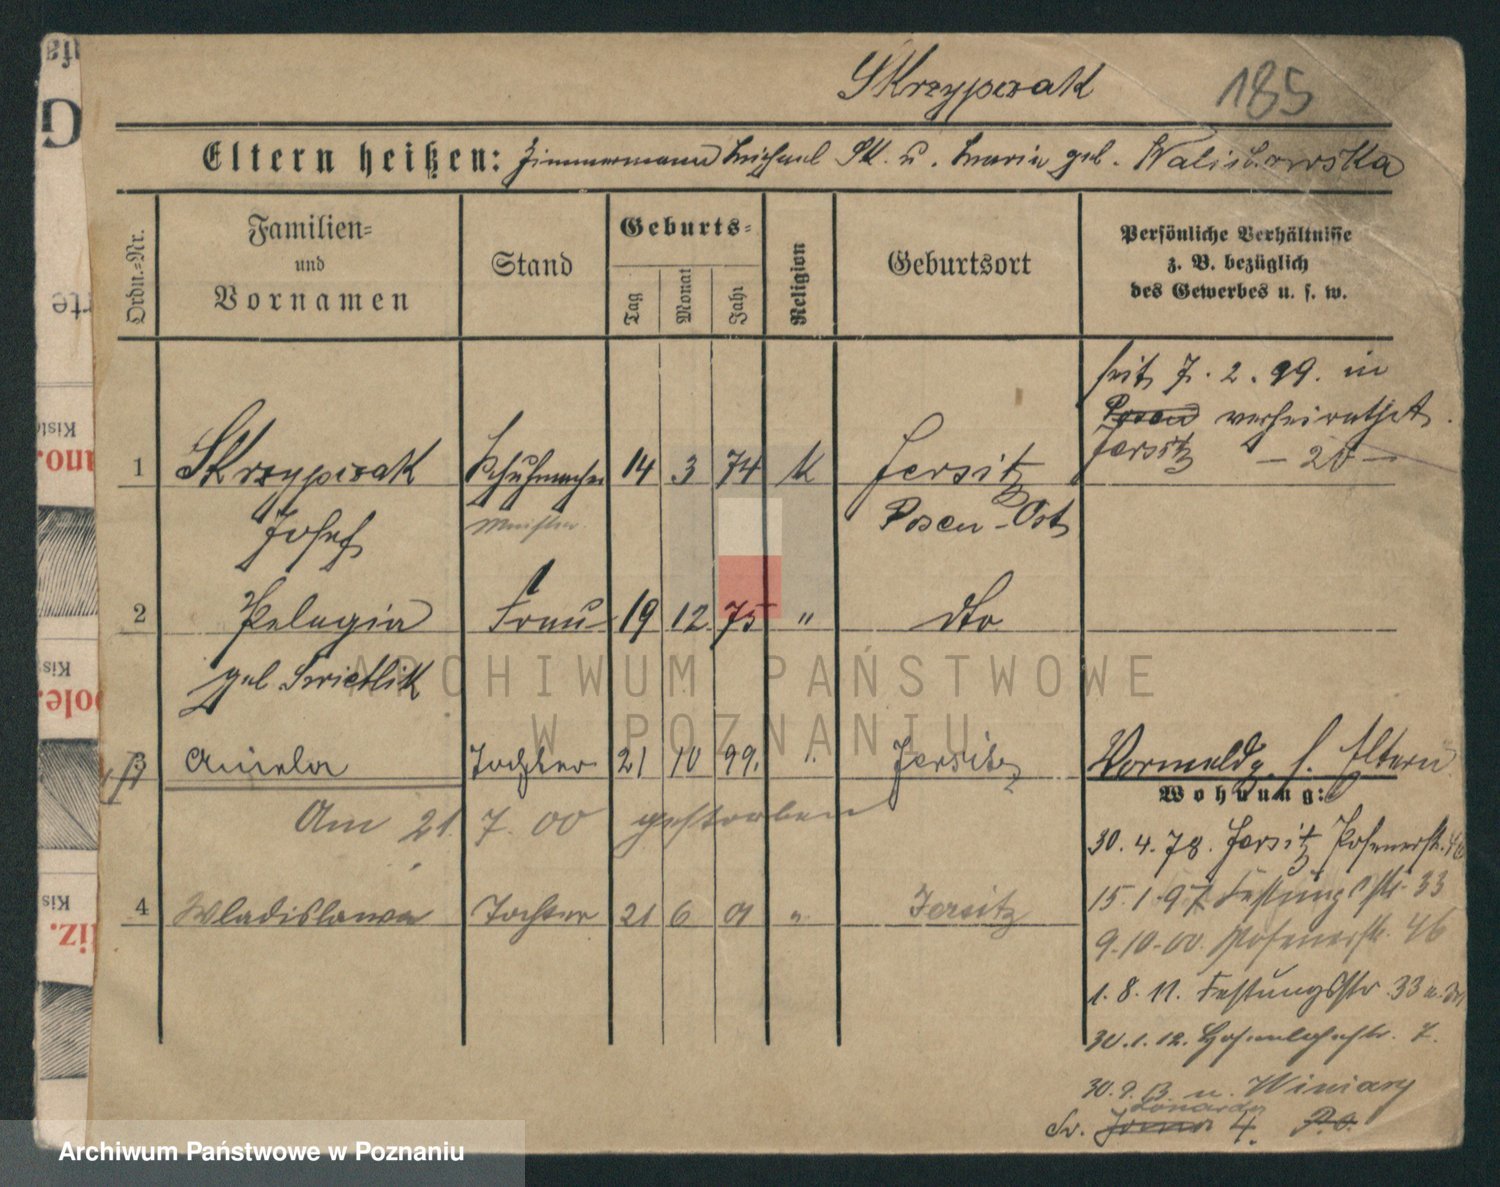 Skrzypczak 185
Eltern heißen: Zimmermann Michael Sk. u. Maria geb. Waliszewska
Ordn.-Nr.
Familien-
und
Vornamen
Stand
Geburts-
Tag
Monat
Jahr
Religion
Geburtsort
Persönliche Verhältnisse
z. B. bezüglich
des Gewerbes u. s. w.
seit 7. 2. 99. in
Posen verheirathet.
Jersitz – 20 –
1 Skrzypczak Schuhmacher 14 3 74 K Jersitz
Josef Meister Posen-Ost
2 Pelagia Frau 19 12 75 " dto
geb Swietlik
3 Aniela Tochter 21 10 99. Jersitz
Am 21. 7. 00 gestorben
4 Wladislawa Tochter 21 6 01 " Jersitz
Vormeldg. s. Eltern
Wohnung:
30. 4. 78. Jersitz Posenerstr. 46
15. 1. 97 Festungsstr. 33
9.10.00. Posenerstr. 46
1. 8. 11. Festungsstr. 33 u.
30. 1. 12. 7.
30. 9. 13 n. Winiary
4. P.O.
ARCHIWUM PAŃSTWOWE
W POZNANIU
Archiwum Państwowe w Poznaniu